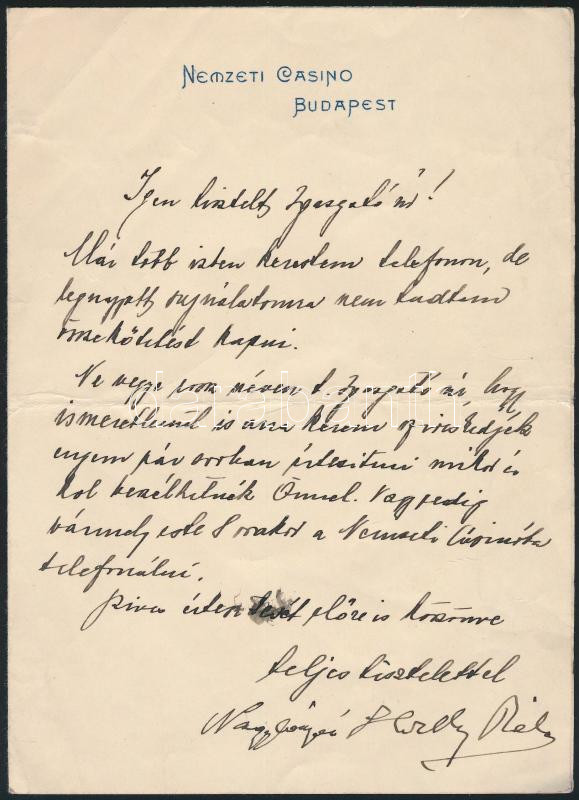 NEMZETI CASINO
BUDAPEST
Igen tisztelt Igazgató úr!
Már több izben kerestem telefonon, de
legnagyobb sajnálatomra nem tudtam
összekötetést kapni.
Ne vegye rossz néven t. Igazgató úr, hogy
ismeretlenül is arra kérem sziveskedjék
engem pár sorban értesiteni mikor és
hol beszélhetnék Önnel. Vagy pedig
bármely este 8 órakor a Nemzeti Casinóba
telefonálni.
értesitését előre is köszönve
teljes tisztelettel
Béla
darabanth